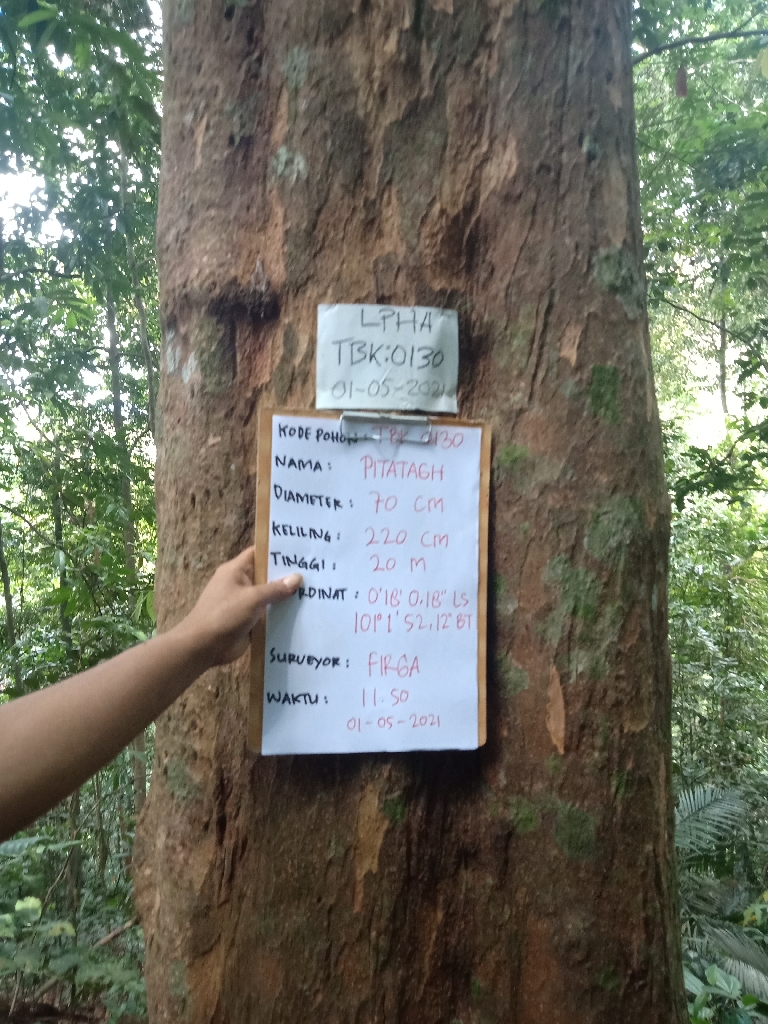 LPHA
TBK:0130
01-05-2021
KODE POHON: TBK 0130
NAMA: PITATAGH
DIAMETER: 70 CM
KELILING: 220 CM
TINGGI: 20 M
ORDINAT: 0°18' 0.18" LS
101° 1' 52,12" BT
SURVEYOR: FIRGA
WAKTU: 11.50
01-05-2021